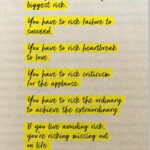 biggest risk.
You have to risk failure to
succeed.
You have to risk heartbreak
to love.
You have to risk criticism
for the applause.
You have to risk the ordinary
to achieve the extraordinary.
If you live avoiding risk,
you're risking missing out
on life.